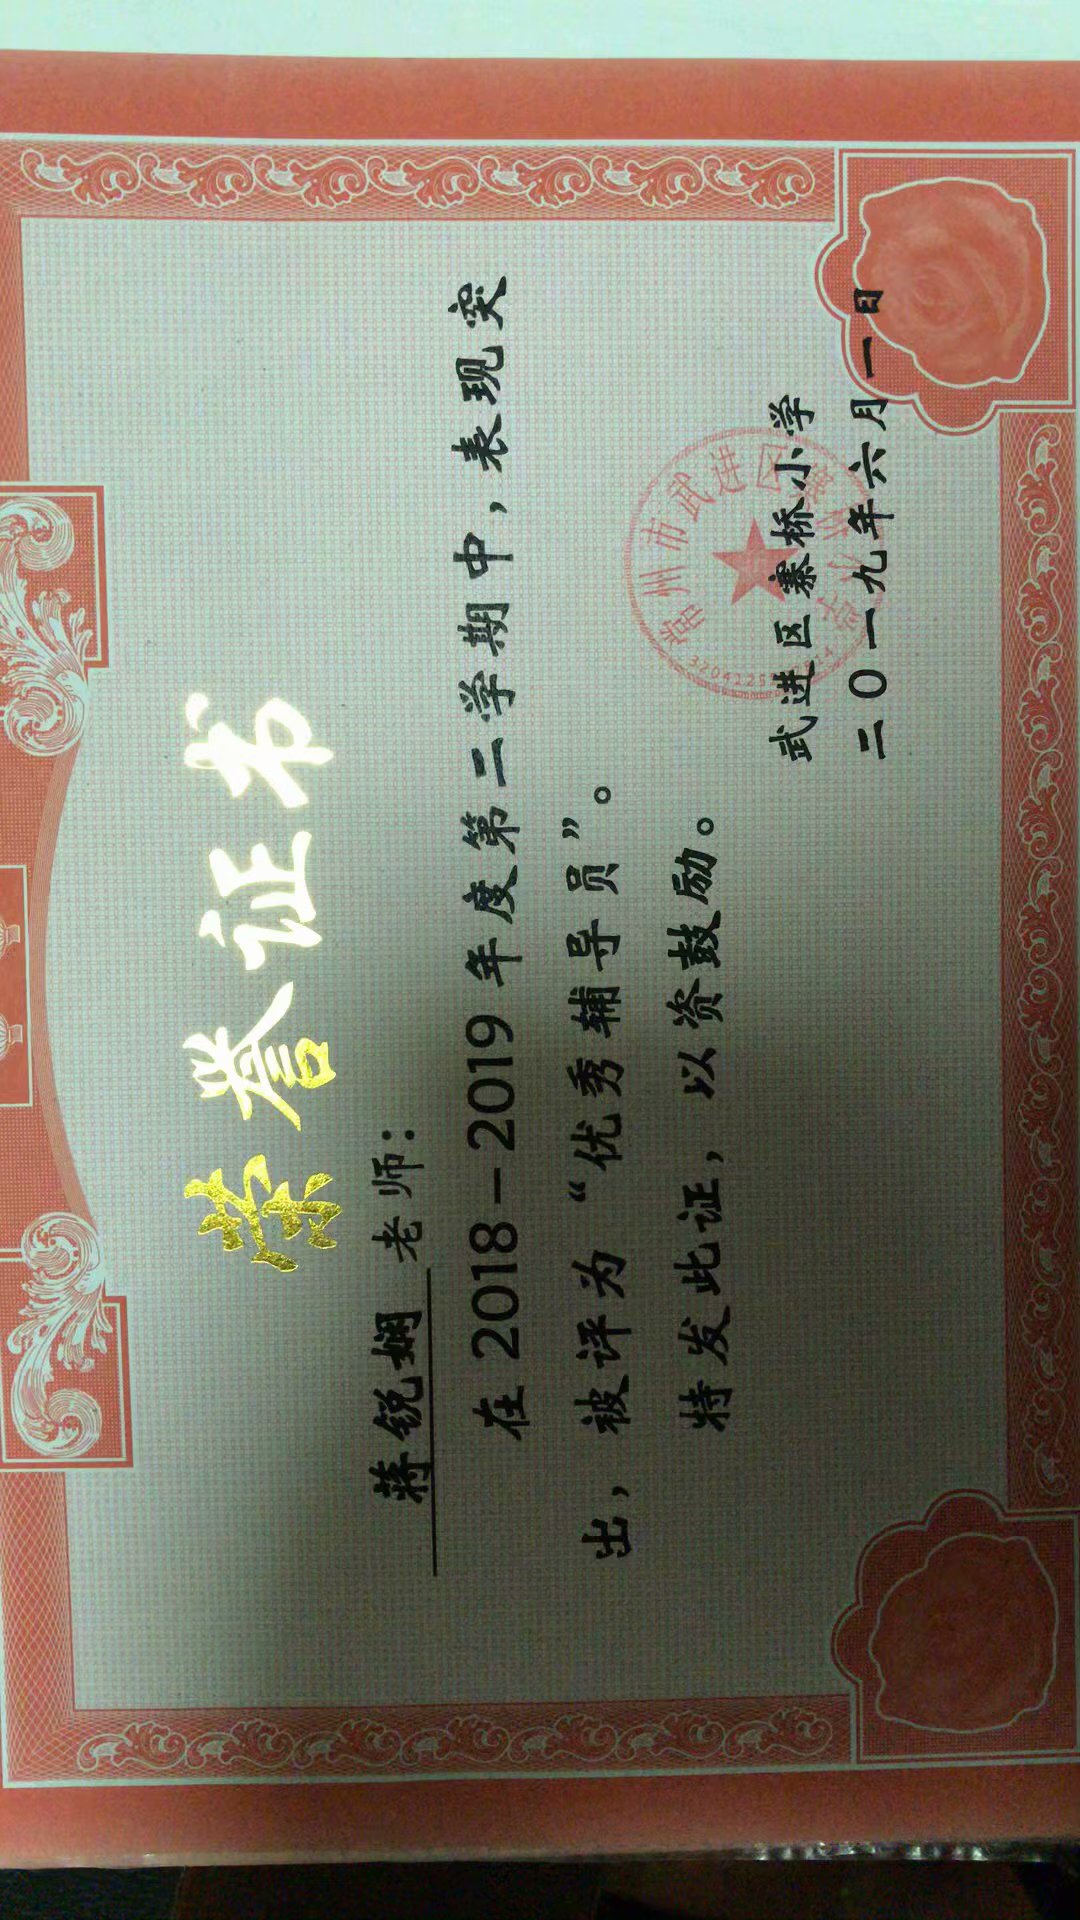 荣誉证书
蒋锐娴 老师：
在 2018－2019 年度第二学期中，表现突
出，被评为“优秀辅导员”。
特发此证，以资鼓励。
武进区寨桥小学
二〇一九年六月一日
常州市武进区寨桥小学